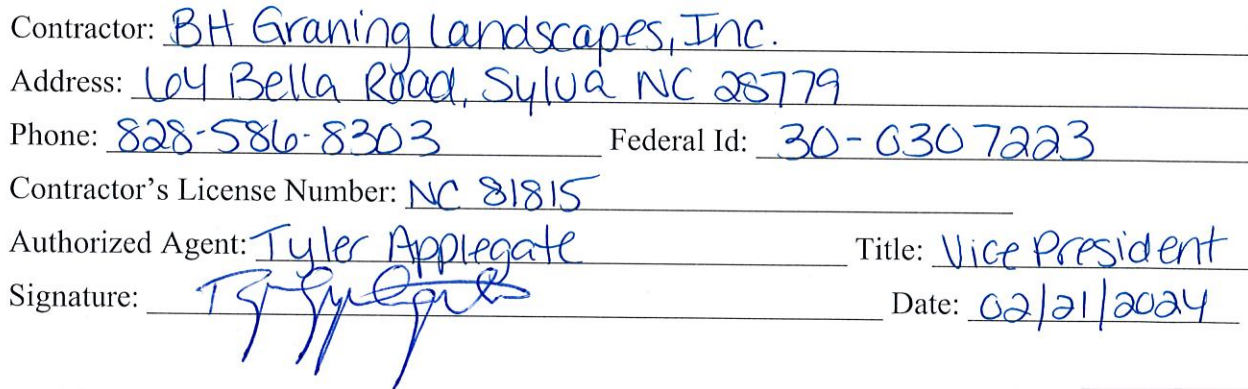 Contractor: BH Graning Landscapes, Inc.
Address: 64 Bella Road, Sylva NC 28779
Phone: 828-586-8303 Federal Id: 30-0307223
Contractor's License Number: NC 81815
Authorized Agent: Tyler Applegate Title: Vice President
Signature: Date: 02/21/2024